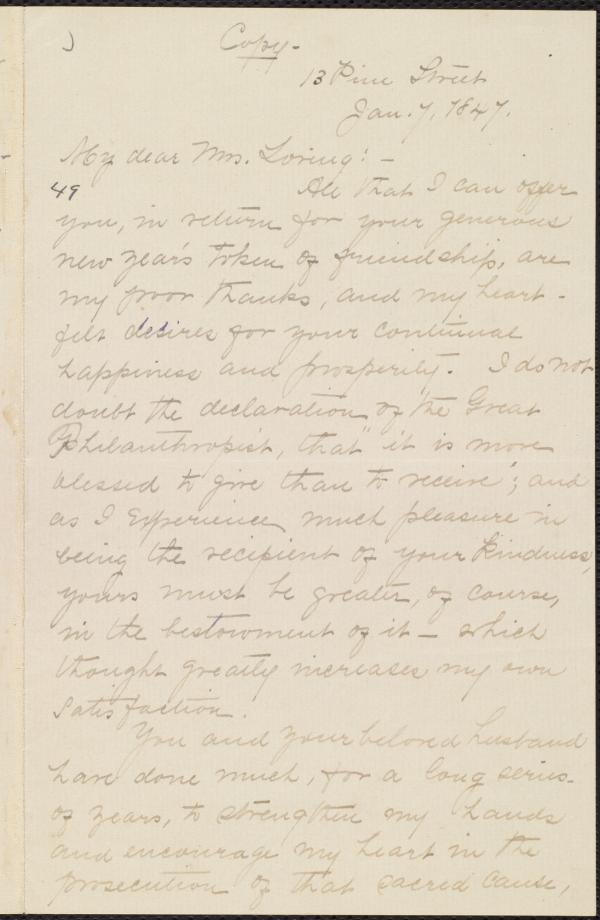 Copy-
13 Pine Street
Jan. 7, 1847.
My dear Mrs. Loring: -
49
All that I can offer
you, in return for your generous
new year's token of friendship, are
my poor thanks, and my heart-
felt desires for your continual
happiness and prosperity. I do not
doubt the declaration of the Great
Philanthropist, that "it is more
blessed to give than to receive"; and
as I experience much pleasure in
being the recipient of your kindness,
yours must be greater, of course,
in the bestowment of it - which
thought greatly increases my own
satisfaction.
You and your beloved husband
have done much, for a long series
of years, to strengthen my hands
and encourage my heart in the
prosecution of that sacred cause,